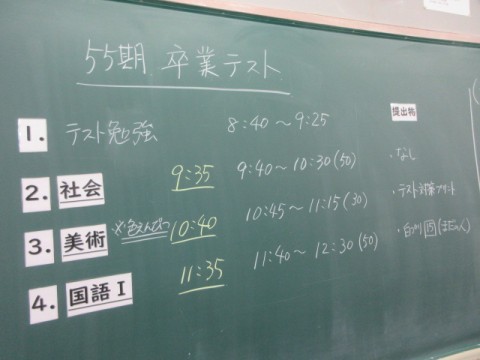 55期 卒業テスト
提出物
1. テスト勉強 8:40～9:25
9:35 9:40～10:30(50) ・なし
2. 社会
10:45～11:15(30) ・テスト対策プリント
3. 美術 ※色えんぴつ 10:40
11:40～12:30(50)
11:35
4. 国語Ⅰ